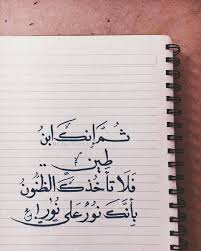 ثُمَّ إنكَ ابنُ
طين ..
فَلا تأخذكَ الظنُون
بأنكَ نُورٌ عَلى نُورٍ